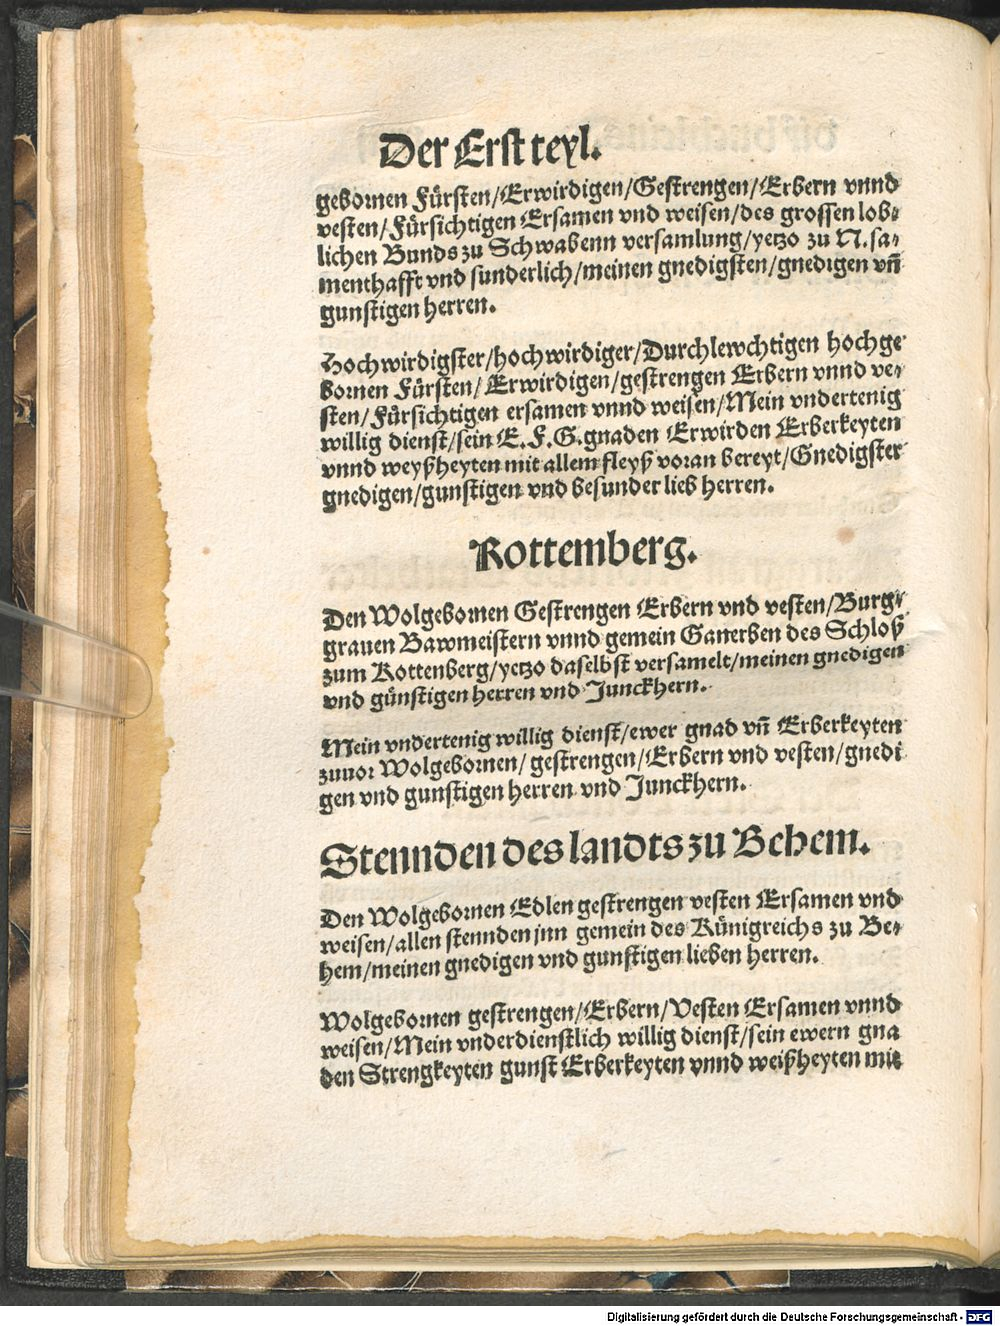 Der Erst teyl.
gebornen Fürsten/Erwirdigen/Gestrengen/Erbern vnnd
vesten/Fürsichtigen Ersamen vnd weisen/des grossen lob⸗
lichen Bunds zu Schwabenn versamlung/yetzo zu N.sa⸗
menthafft vnd sunderlich/meinen gnedigsten/gnedigen vñ
gunstigen herren.
Hochwirdigster/hochwirdiger/Durchlewchtigen hochge
bornen Fürsten/Erwirdigen/gestrengen Erbern vnnd ve⸗
sten/Fürsichtigen ersamen vnnd weisen/Mein vndertenig
willig dienst/sein E.F.G.gnaden Erwirden Erberkeyten
vnnd weyßheyten mit allem fleyß voran bereyt/Gnedigster
gnedigen/gunstigen vnd besunder lieb herren.
Rottemberg.
Den Wolgebornen Gestrengen Erbern vnd vesten/Burg⸗
grauen Bawmeistern vnnd gemein Ganerben des Schloß
zum Rottenberg/yetzo daselbst versamelt/meinen gnedigen
vnd günstigen herren vnd Junckhern.
Mein vndertenig willig dienst/ewer gnad vñ Erberkeyten
zuuor Wolgebornen/gestrengen/Erbern vnd vesten/gnedi
gen vnd gunstigen herren vnd Junckhern.
Stennden des landts zu Behem.
Den Wolgebornen Edlen gestrengen vesten Ersamen vnd
weisen/allen stennden jnn gemein des Künigreichs zu Be⸗
hem/meinen gnedigen vnd gunstigen lieben herren.
Wolgebornen gestrengen/Erbern/Vesten Ersamen vnnd
weisen/Mein vnderdienstlich willig dienst/sein ewern gna
den Strengkeyten gunst Erberkeyten vnnd weißheyten mit
Digitalisierung gefördert durch die Deutsche Forschungsgemeinschaft - DFG